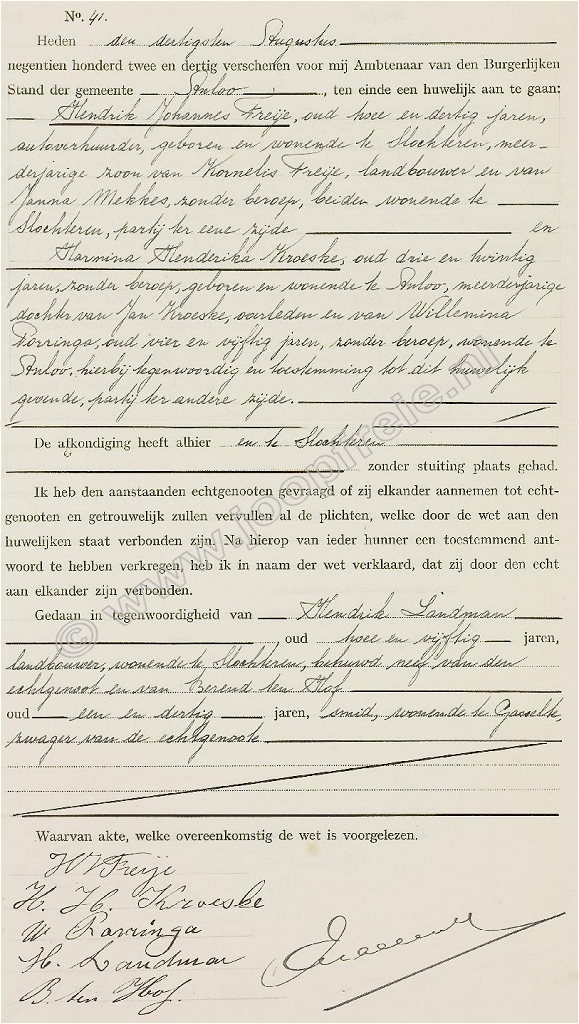 No. 41.
Heden den dertigsten Augustus
negentien honderd twee en dertig verschenen voor mij Ambtenaar van den Burgerlijken
Stand der gemeente Anloo, ten einde een huwelijk aan te gaan:
Hendrik Johannes Freije, oud twee en dertig jaren,
autoverhuurder, geboren en wonende te Slochteren, meer-
derjarige zoon van Kornelis Freije, landbouwer en van
Janna Mekkes, zonder beroep, beiden wonende te
Slochteren, partij ter eene zijde en
Harmina Henderika Kroeske, oud drie en twintig
jaren, zonder beroep, geboren en wonende te Anloo, meerderjarige
dochter van Jan Kroeske, overleden en van Willemina
Porringa, oud vier en vijftig jren, zonder beroep, wonende te
Anloo, hierbij tegenwoordig en toestemming tot dit huwelijk
gevende, partij ter andere zijde.
De afkondiging heeft alhier en te Slochteren
zonder stuiting plaats gehad.
Ik heb den aanstaanden echtgenooten gevraagd of zij elkander aannemen tot echt-
genooten en getrouwelijk zullen vervullen al de plichten, welke door de wet aan den
huwelijken staat verbonden zijn. Na hierop van ieder hunner een toestemmend ant-
woord te hebben verkregen, heb ik in naam der wet verklaard, dat zij door den echt
aan elkander zijn verbonden.
Gedaan in tegenwoordigheid van Hendrik Landman
, oud twee en vijftig jaren,
landbouwer, wonende te Slochteren, behuwd neef van den
echtgenoot en van Berend ten Hof
oud een en dertig jaren, smid, wonende te Gasselte,
zwager van de echtgenoote
Waarvan akte, welke overeenkomstig de wet is voorgelezen.
HJ Freije
H. H. Kroeske
W Porringa
H. Landman
B. ten Hof.
© www.joopfreie.nl